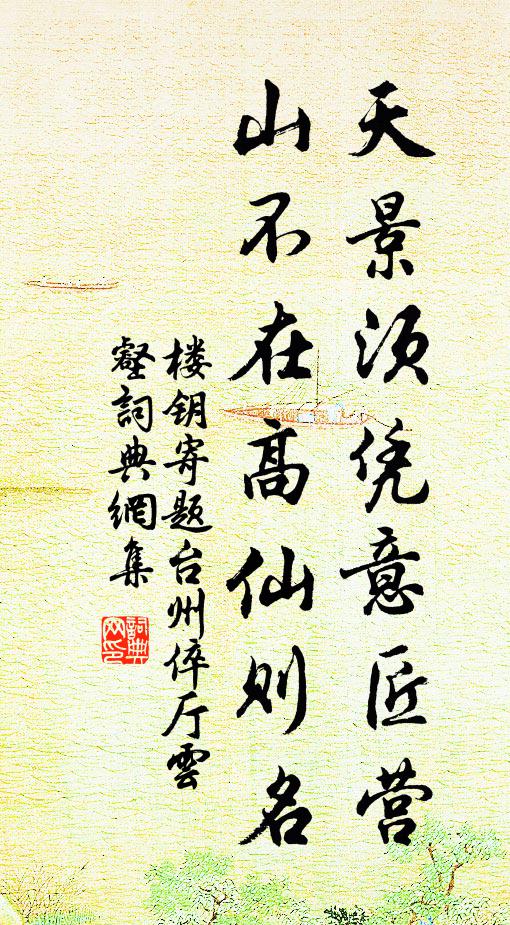 天景须凭意匠营
山不在高仙则名
楼钥寄题台州倅厅雲
壑詞典網集
詞典
网印